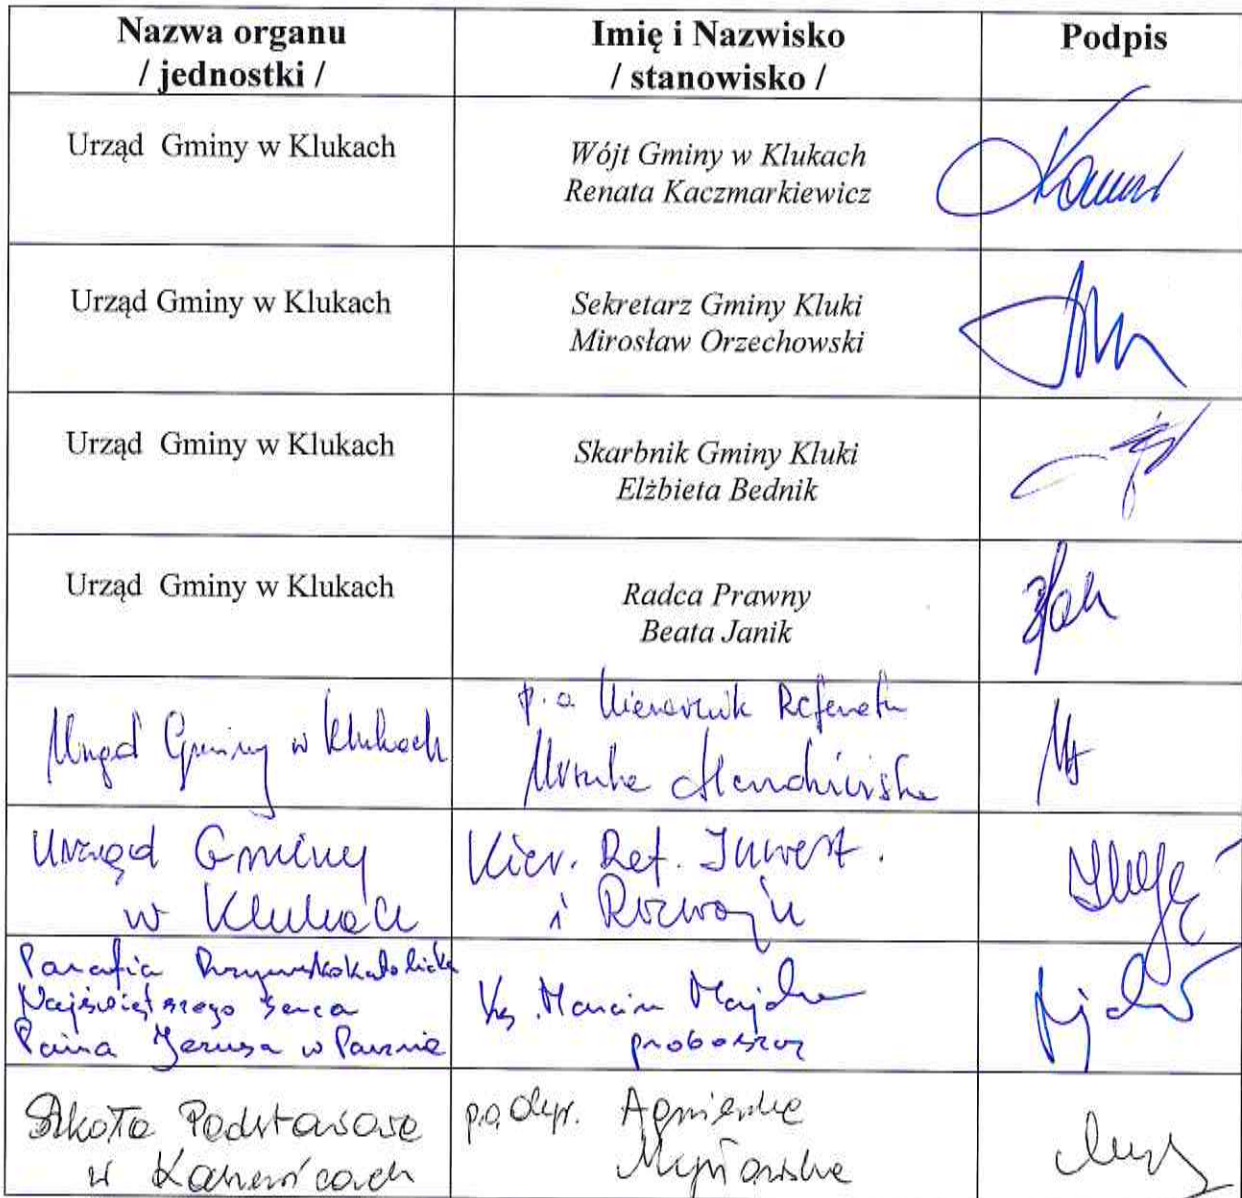 Nazwa organu
/ jednostki /
Imię i Nazwisko
/ stanowisko /
Podpis
Urząd Gminy w Klukach
Wójt Gminy w Klukach
Renata Kaczmarkiewicz
Urząd Gminy w Klukach
Sekretarz Gminy Kluki
Mirosław Orzechowski
Urząd Gminy w Klukach
Skarbnik Gminy Kluki
Elżbieta Bednik
Urząd Gminy w Klukach
Radca Prawny
Beata Janik
Urząd Gminy w Klukach
p.o. Kierownik Referatu
Urząd Gminy
w Klukach
Kier. Ref. Inwest.
i Rozwoju
Parafia Rzymskokatolicka
Najświętszego Serca
Pana Jezusa w Parznie
Ks. Marcin Majda
proboszcz
Szkoła Podstawowa
w Kaszewicach
p.o. dyr. Agnieszka